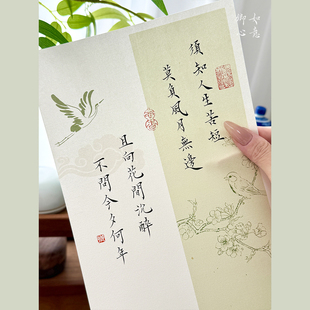 須知人生苦短
莫負風月無邊
且向花間沉醉
不問今夕何年
如意
御心